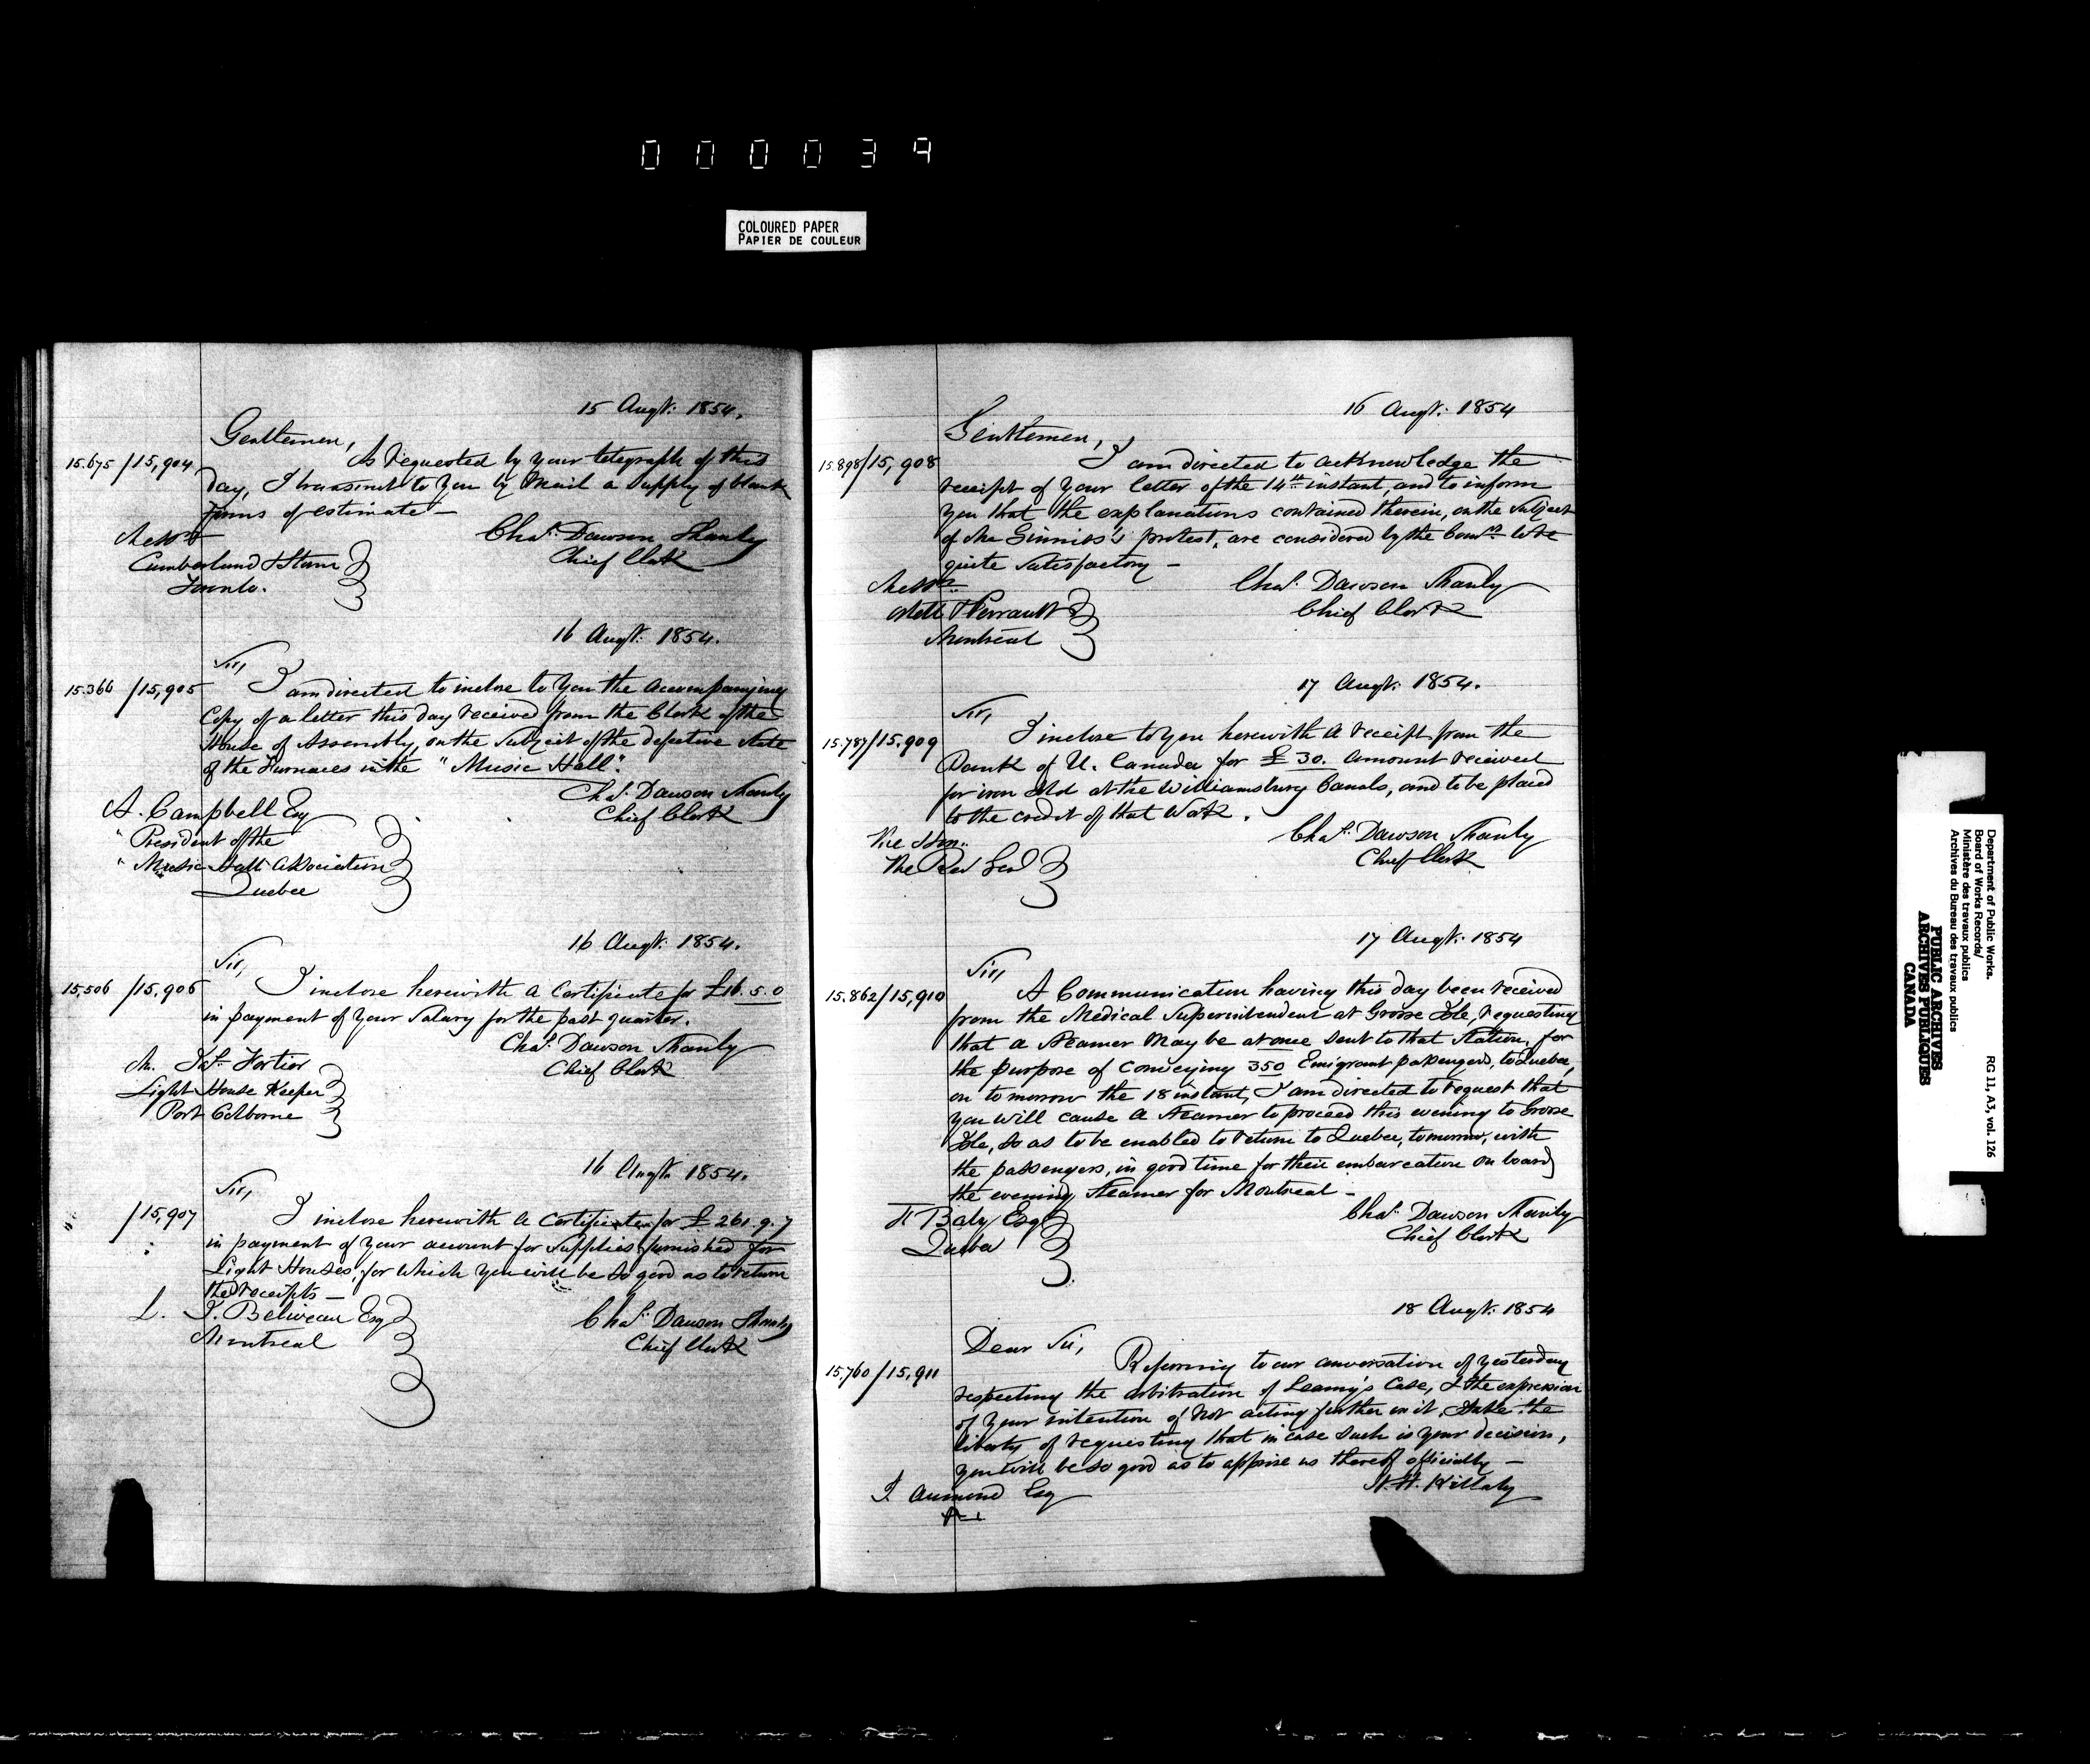 000039
COLOURED PAPER
PAPIER DE COULEUR
15 Augt. 1854.
Gentlemen,
15.675/15,904 As requested by your telegraph of this
day, I transmit to you by Mail a supply of blank
forms of estimate —
Chas. Dawson Shanly
Chief Clerk
Messrs
Cumberland & Storm
Toronto.
16 Augt. 1854.
Sir,
15.366/15,905 I am directed to inclose to you the accompanying
Copy of a letter this day received from the Clerk of the
House of Assembly, on the subject of the defective state
of the Furnaces in the "Music Hall".
Chas. Dawson Shanly
Chief Clerk
A. Campbell Esq
President of the
Music Hall Association
Quebec
16 Augt. 1854.
Sir,
15,506/15,906 I inclose herewith a Certificate for £16.5.0
in payment of your salary for the past quarter.
Chas. Dawson Shanly
Chief Clerk
M. Fortier
Light House Keeper
Port Colborne
16 Augt. 1854.
Sir,
/15,907 I inclose herewith a Certificate for £261.9.7
in payment of your account for supplies furnished for
Light Houses, for which you will be so good as to return
the receipts —
L. J. Beliveau Esq
Montreal
Chas. Dawson Shanly
Chief Clerk
16 Augt. 1854
Gentlemen,
15.898/15,908 I am directed to acknowledge the
receipt of your letter of the 14th instant, and to inform
you that the explanations contained therein, on the subject
of McGinnis's protest, are considered by the Comrs. to be
quite satisfactory —
Chas. Dawson Shanly
Chief Clerk
Messrs
Perrault
Montreal
17 Augt. 1854.
Sir,
15.787/15.909 I inclose to you herewith a receipt from the
Bank of U. Canada for £30. amount received
for iron sold at the Williamsburg Canals, and to be placed
to the credit of that Work.
Chas. Dawson Shanly
Chief Clerk
The Hon.
The Rec Genl
17 Augt. 1854
Sir,
15.862/15,910 A Communication having this day been received
from the Medical Superintendent at Grosse Isle, requesting
that a Steamer may be at once sent to that Station, for
the purpose of conveying 350 Emigrant passengers, to Quebec,
on tomorrow the 18 instant, I am directed to request that
you will cause a Steamer to proceed this evening to Grosse
Isle, so as to be enabled to return to Quebec, tomorrow, with
the passengers, in good time for their embarcation on board
the evening Steamer for Montreal —
Chas. Dawson Shanly
Chief Clerk
F Baby Esq
Quebec
18 Augt. 1854
Dear Sir,
15.760/15,911 Referring to our conversation of yesterday
respecting the arbitration of Leamy's Case, & the expression
of your intention of not acting further in it, I take the
liberty of requesting that in case such is your decision,
you will be so good as to apprise us thereof officially —
H. H. Killaly
J. Aumond Esq
Department of Public Works.
Board of Works Records/
Ministère des travaux publics
Archives du Bureau des travaux publics
RG 11, A3, vol. 126
PUBLIC ARCHIVES
ARCHIVES PUBLIQUES
CANADA